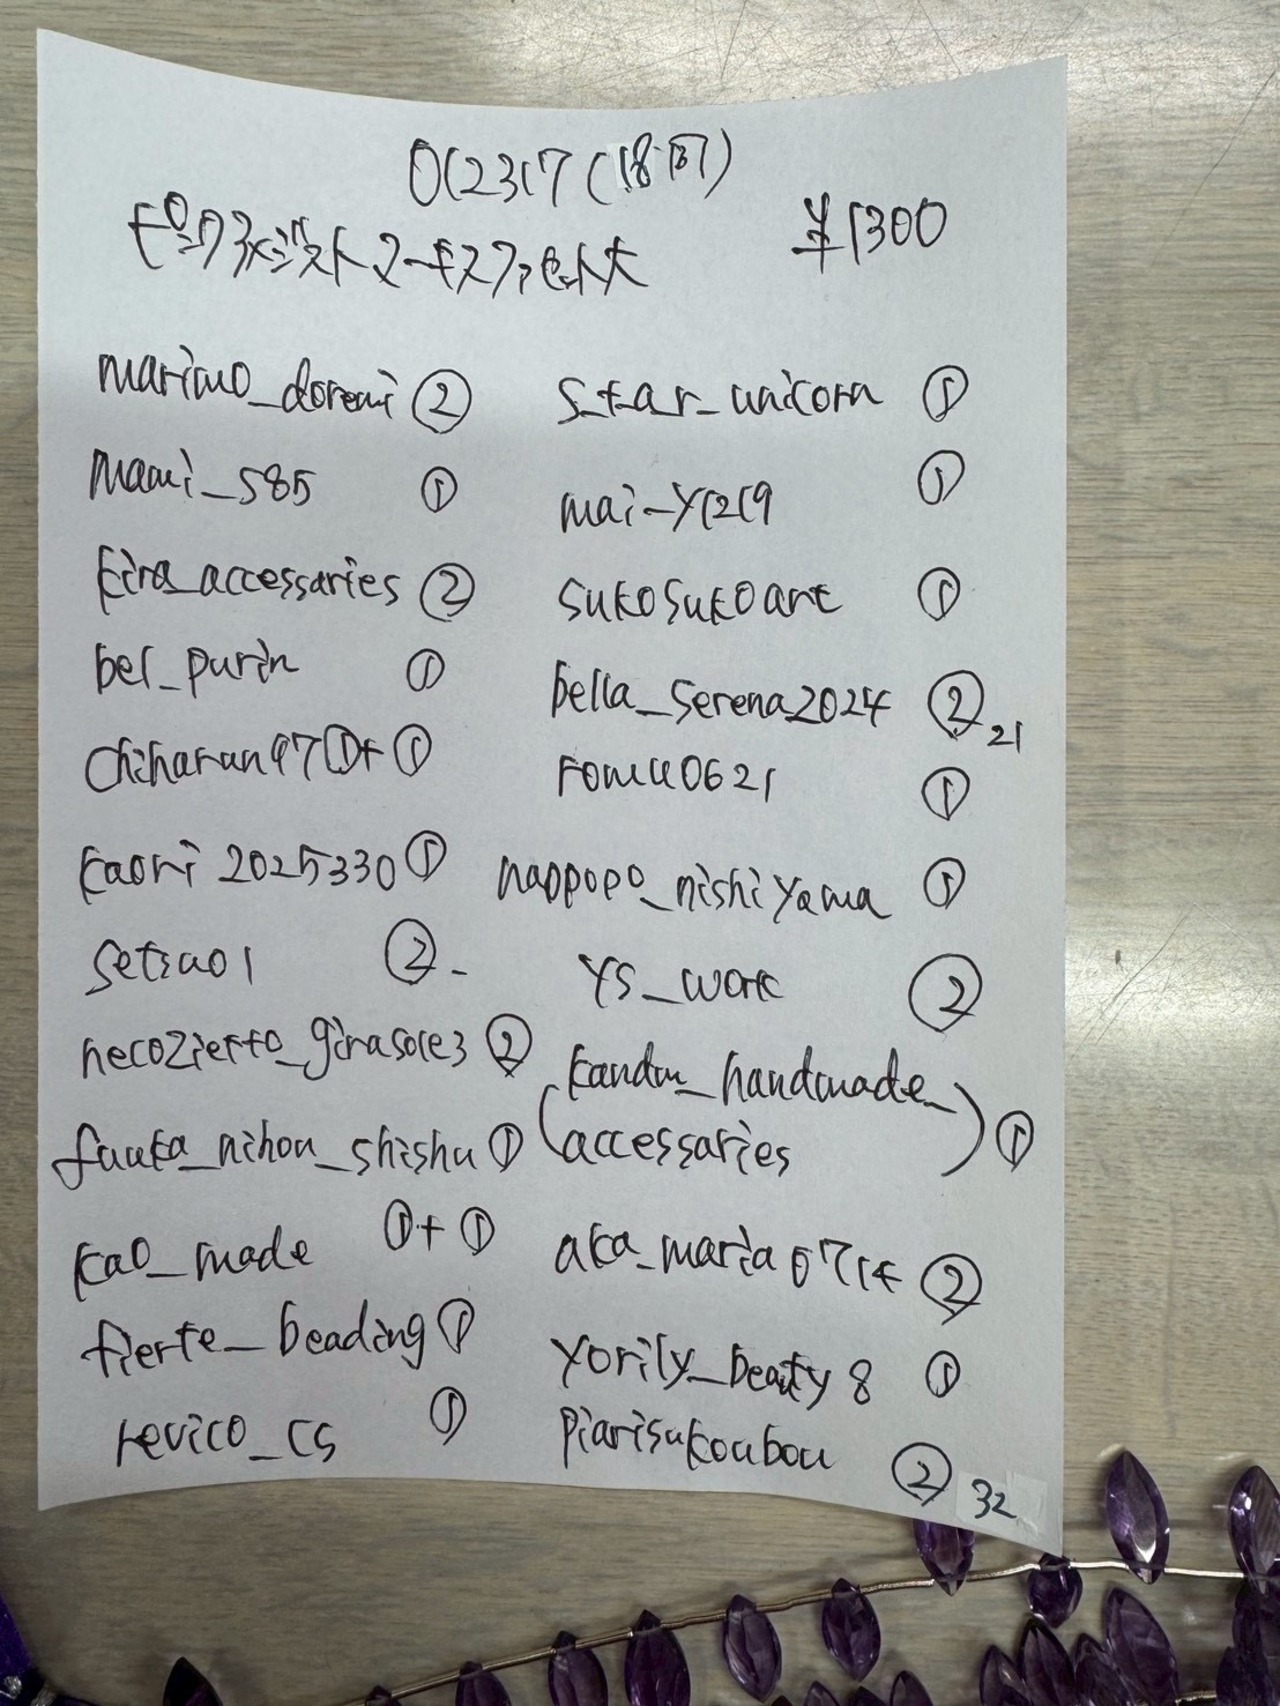 012317(18時)
ピンクアメジストマーキスファセット大 ¥1300
marimo_doremi ②
mami_585 ①
kira_accessaries ②
bel_purin ①
chiharun97 ①+①
kaori2025330 ①
setsu01 ②
necozietto_girasole3 ②
fuuka_nihon_shishu ①
kao_made ①+①
fierte_beading ①
revico_cs ①
star_unicorn ①
mai_y1219 ①
sukosukoart ①
bella_serena2024 ② 21
romu0621 ①
nappopo_nishiyama ①
ys_work ②
(kandm_handmade_
accessaries) ①
aka_maria0714 ②
yorily_beauty8 ①
piarisukoubou ② 32